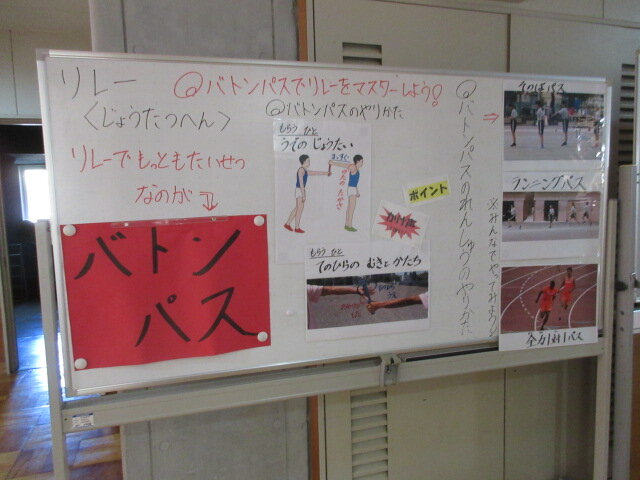 リレー
〈じょうたつへん〉
◎バトンパスでリレーをマスターしよう!
リレーでもっともたいせつ
なのが⇒
バトン
パス
◎バトンパスのやりかた
もらう ひと
うでの じょうたい
まっすぐ
かたの たかさ
ポイント
もらう ひと
てのひらの むきと かたち
◎バトンパスのれんしゅうのやりかた
⇒
※みんなでやってみよう
そのばパス
ランニングパス
全力1対1パス